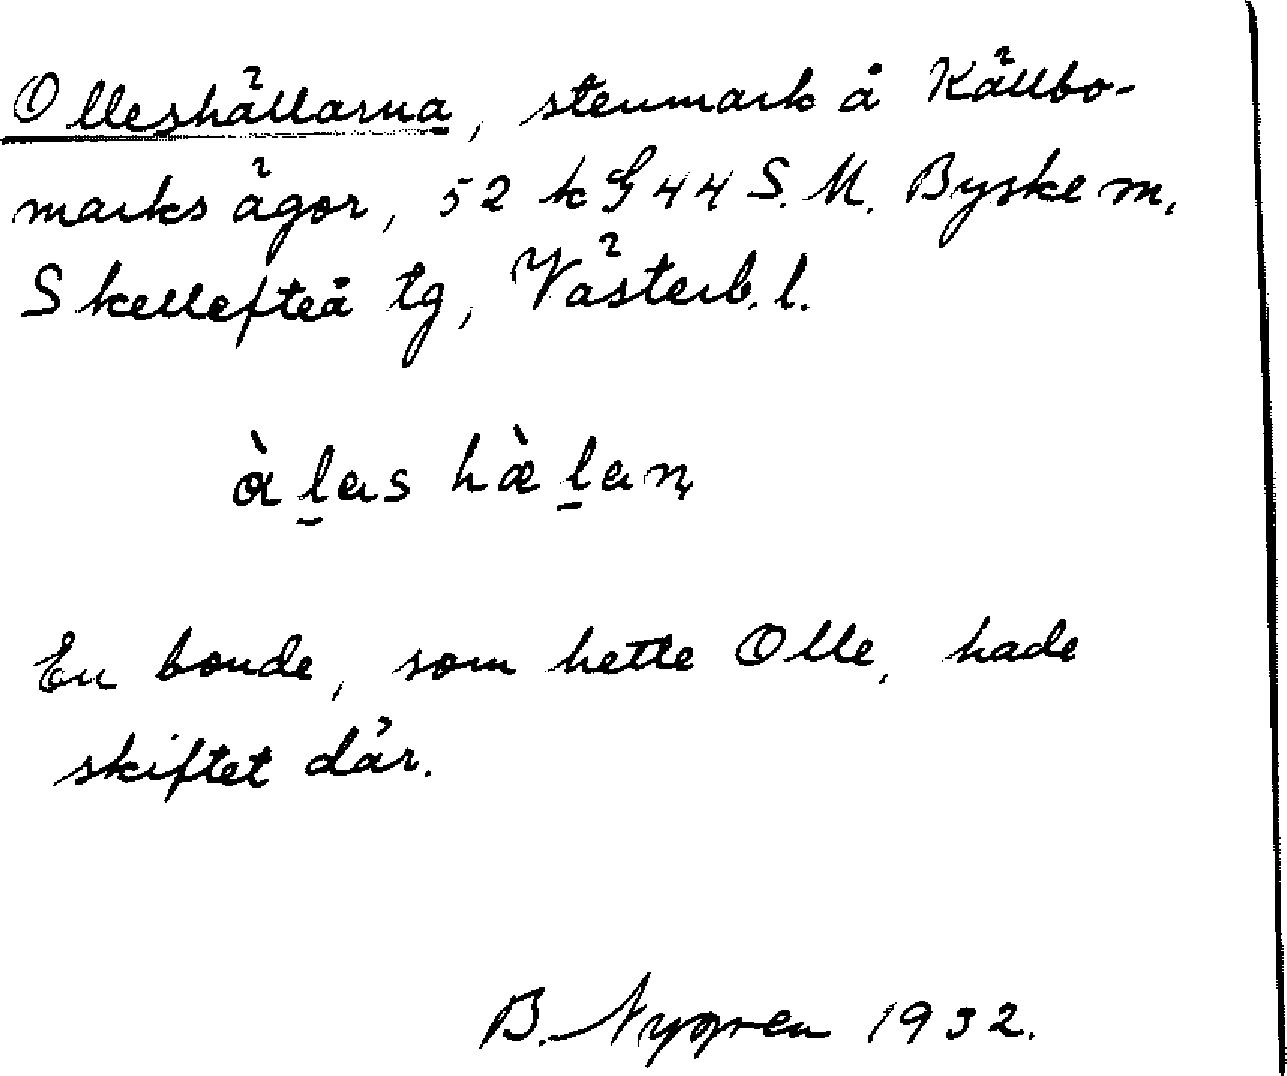 Olleshällarna, stenmark å Källbo-
marks ägor, 52 k G 44 S. M. Byske sn,
Skellefteå tg, Västerb. l.
ὰl̠as hæ̀l̠aɳ
En bonde, som hette Olle, hade
skiftet där.
B. Nygren 1932.